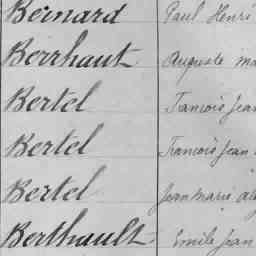 Bernard Paul Henri
Berrhaut Auguste ma
Bertel Francois Jean
Bertel Francois Jean
Bertel Jean Marie
Berthault Emile Jean